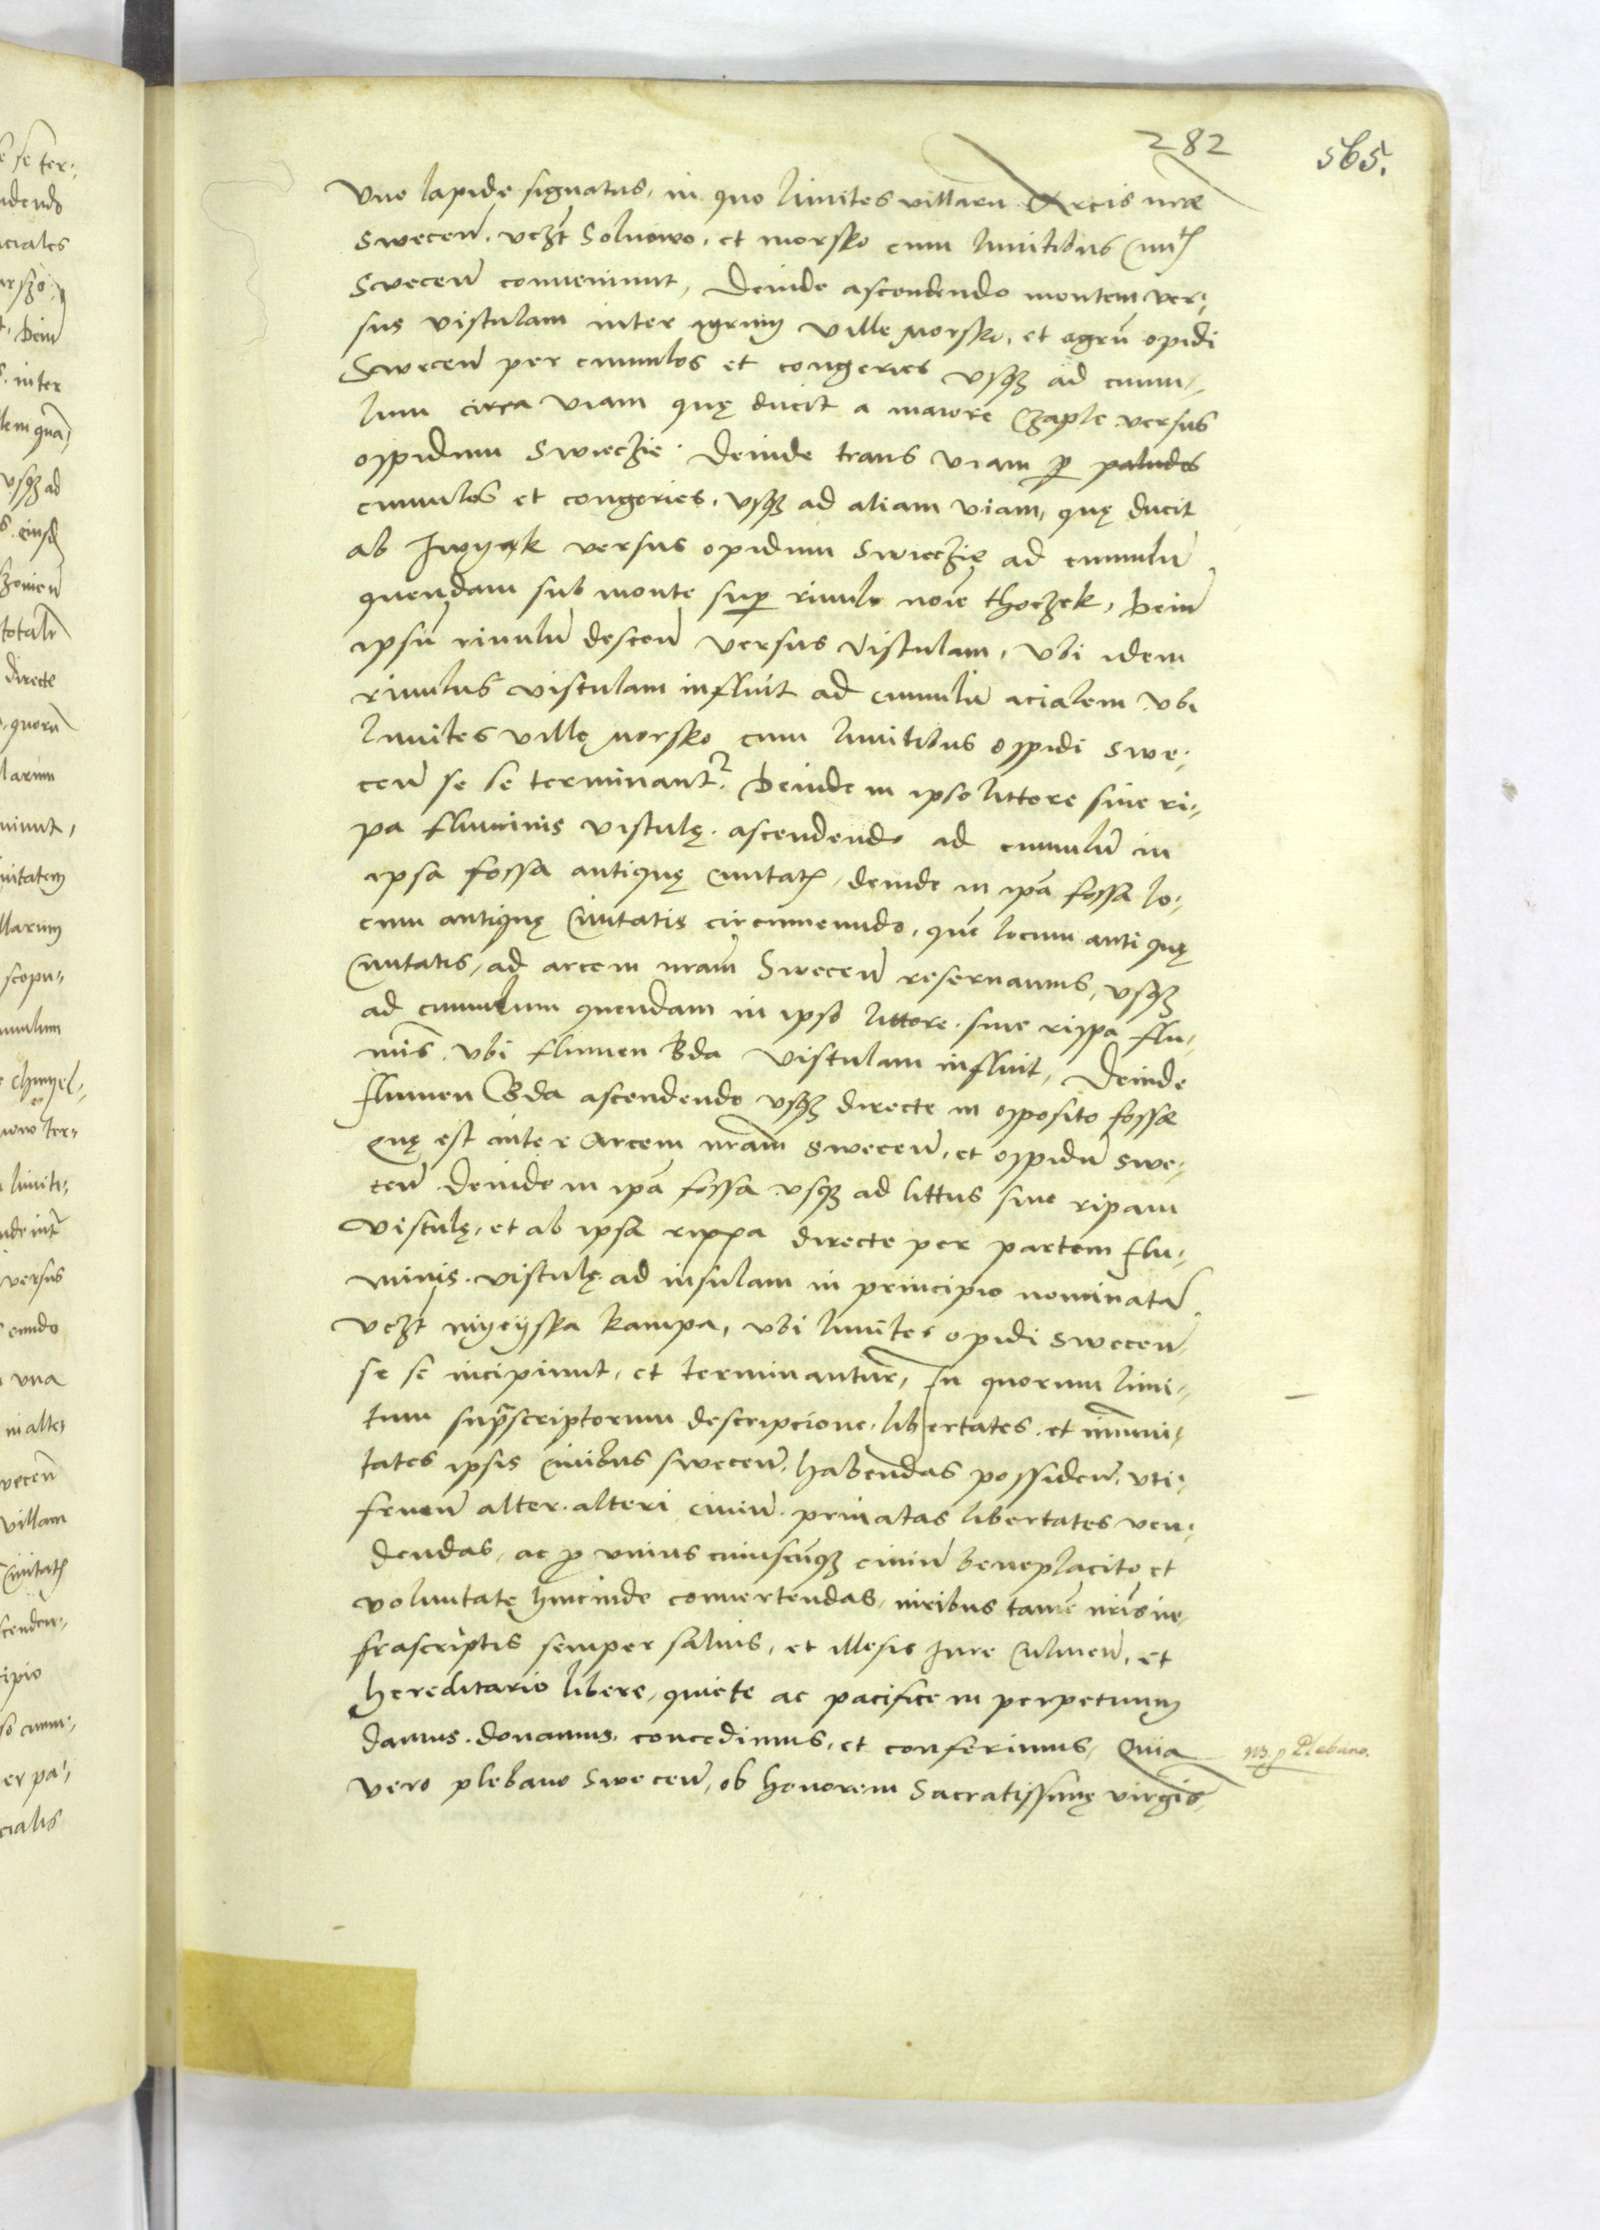 282
565.
vno lapide signatus, in quo limites villaru Arcis nrae
Swecen̄. vczt Solnowo, et morsko cum limitibus Ciuitatis
Swecen̄ conueniunt, Deinde ascendendo montem ver-
sus vistulam inter agrum ville Morsko, et agrū opidi
Swecen̄ per cumulos et congeries vsqꝫ ad cumu-
lum circa viam quę ducit a maiore Czaple versus
oppidum Swieczie. Deinde trans viam ꝑ paludes
cumulos et congeries, vsqꝫ ad aliam viam, quę ducit
ab Jwynk versus opidum Swieczie ad cumulū
quendam sub monte suꝑ riuulo noīe thoczek, Dein̄
ipsū riuulū descen̄ versus Vistulam, vbi idem
riuulus vistulam influit ad cumulū acialem vbi
limites villę morsko cum limitibus oppidi Swe-
cen̄ se se terminant², Deinde in ipso littore siue ri-
pa fluminis vistulę. ascendendo ad cumulū in
ipsa fossa antiquę Ciuitatꝭ, deinde in ipā fossa lo-
cum antiquę Ciuitatis circumeundo, quē locum antiquę
Ciuitatis, ad arcem nram̄ Swecen̄ reseruamus, vsqꝫ
ad cumulum quendam in ipso littore. siue rippa flu-
mīs. vbi flumen Bda vistulam influit, Deinde
flumen Bda ascendendo vsqꝫ directe in opposito fossae
Quę est inter Arcem nram̄ Swecen̄, et oppidū Swe-
cen̄ Deinde in ipā fossa vsqꝫ ad littus siue ripam
Vistulę, et ab ipsa rippa directe per partem flu-
minis. vistulę ad insulam in principio nominatā
vczt myeyska kampa, vbi limites opidi Swecen̄
se se incipiunt, et terminantur, In quorum limi-
tum suprascriptorum descripcione, libertates. et im̄mu-
tates ipsis Ciuibus Swecen̄. habendas possiden̄. vti-
fruen̄ alter. alteri ciuiū. priuatas libertates ven-
dendas, ac ꝓ vnius cuiuscūqꝫ ciuiū beneplacito et
voluntatę hincinde conuertendas, iuribus tamē nrīs in-
frascriptis semper saluis, et illesis Jure Culmen̄, et
hereditario libere, quiete ac pacifice in perpetuum
damus. donamus. concedimus, et conferimus, Quia
vero plebano Swecen̄, ob honorem Sacratissimę virgīs
NB. ꝓ Plebano.